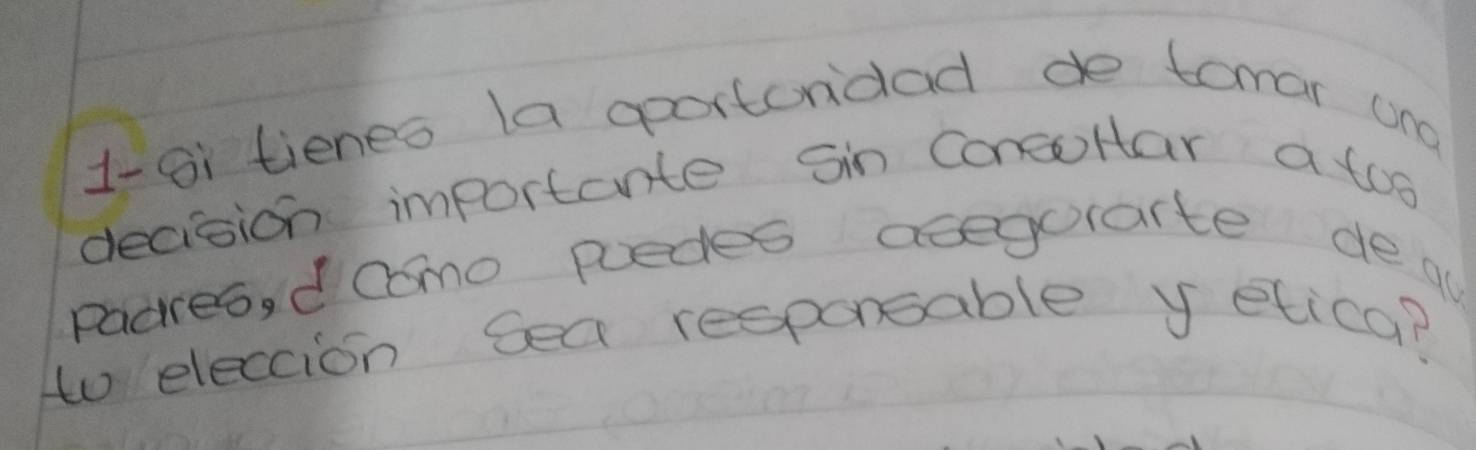 1- Si tienes la oportunidad de tomar una
decisión importante sin consultar a tus
padres, ¿cómo puedes asegurarte de qu
tu elección sea responsable y etica?